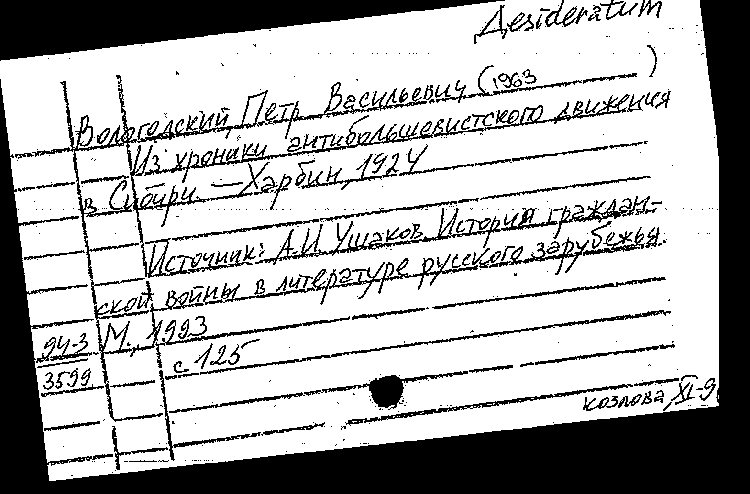 Desideratum
Вологодский, Петр Васильевич (1963 )
Из хроники антибольшевистского движения
в Сибири. — Харбин, 1924
Источник: А.И. Ушаков. История граждан-
ской войны в литературе русского зарубежья.
М., 1993
94-3
3599
с 125
Козлова, XI-9